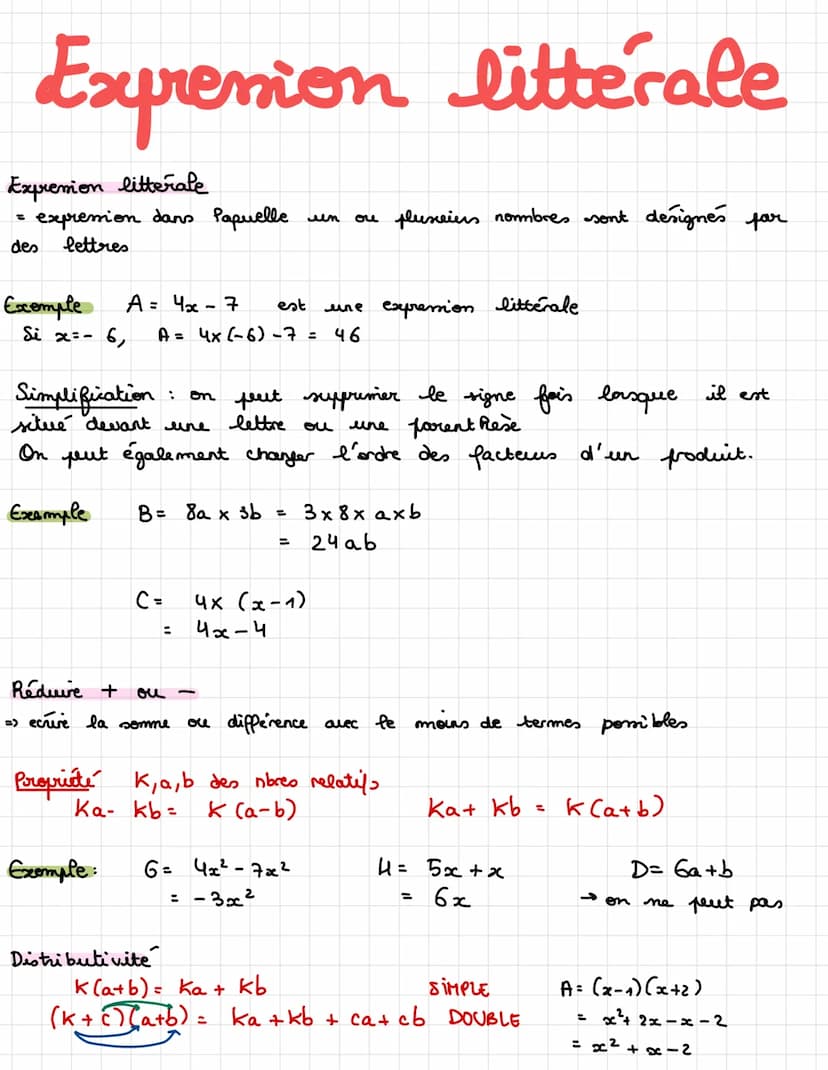 Expression littérale
Expression littérale
= expression dans laquelle un ou plusieurs nombres sont désignés par
des lettres
Exemple A = 4x - 7 est une expression littérale
Si x = - 6, A = 4x(-6) - 7 = 46
Simplification : on peut supprimer le signe fois lorsque il est
situé devant une lettre ou une parenthèse
On peut également changer l'ordre des facteurs d'un produit.
Exemple B = 8a x 3b = 3 x 8 x axb
= 24 ab
C = 4x (x-1)
= 4x - 4
Réduire + ou -
=> écrire la somme ou différence avec le moins de termes possibles
Propriété K, a, b des nbres relatifs
Ka - kb = K (a-b) Ka + Kb = K (a+b)
Exemple : G = 4x² - 7x² H = 5x + x D = 6a+b
= -3x² = 6x → on ne peut pas
Distributivité
K(a+b) = Ka + Kb SIMPLE A = (x-1)(x+2)
(K + c)(a+b) = Ka + kb + ca + cb DOUBLE = x² + 2x - x - 2
= x² + x - 2